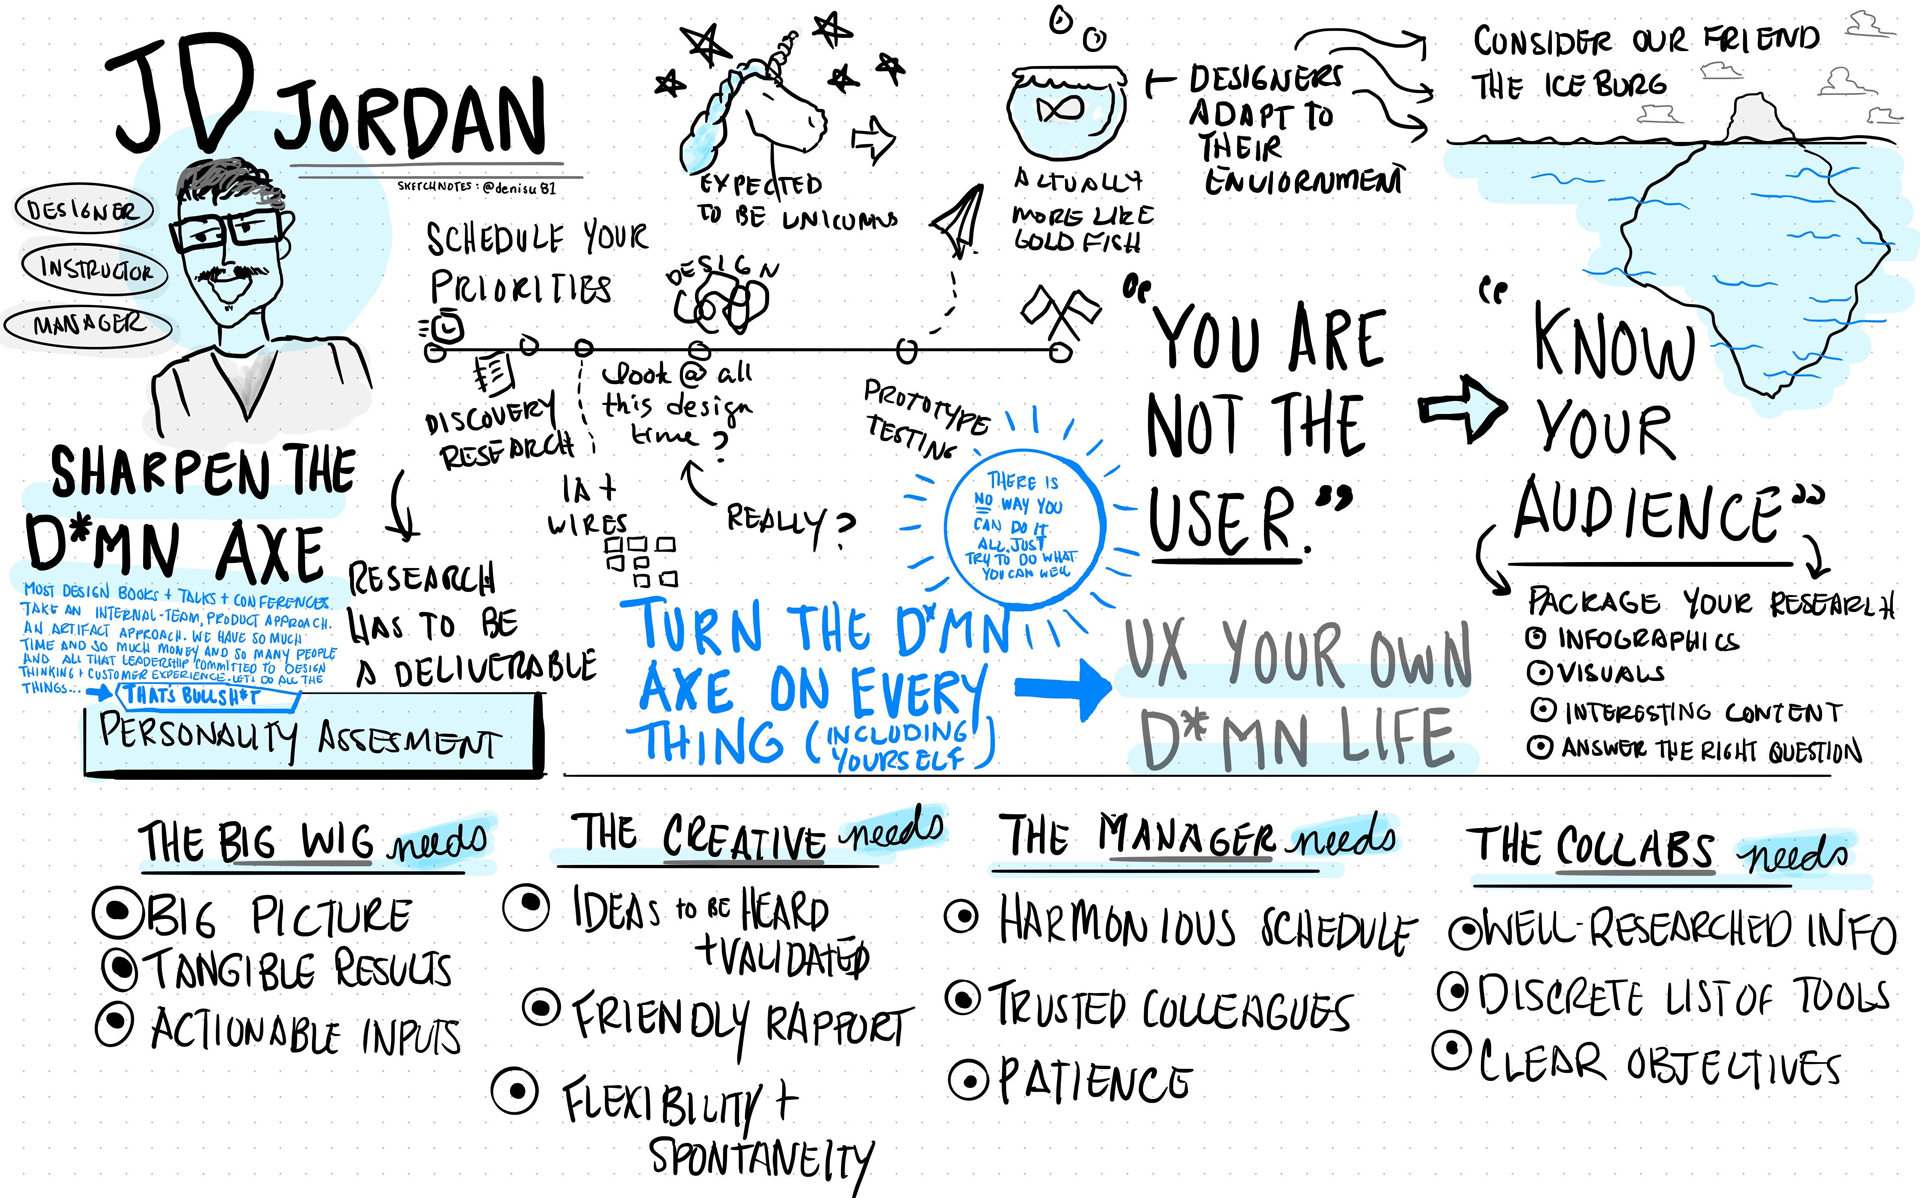 JD JORDAN
SKETCHNOTES: @denisu81
DESIGNER
INSTRUCTOR
MANAGER
SHARPEN THE
D*MN AXE
MOST DESIGN BOOKS + TALKS + CONFERENCES
TAKE AN INTERNAL-TEAM, PRODUCT APPROACH.
AN ARTIFACT APPROACH. WE HAVE SO MUCH
TIME AND SO MUCH MONEY AND SO MANY PEOPLE
AND ALL THAT LEADERSHIP COMMITTED TO DESIGN
THINKING + CUSTOMER EXPERIENCE. LET'S DO ALL THE
THINGS...
THAT'S BULLSH*T
SCHEDULE YOUR
PRIORITIES
DISCOVERY
RESEARCH
RESEARCH
HAS TO BE
A DELIVERABLE
IA +
WIRES
DESIGN
look @ all
this design
time?
REALLY?
PROTOTYPE
TESTING
EXPECTED
TO BE UNICORNS
ACTUALLY
MORE LIKE
GOLD FISH
DESIGNERS
ADAPT TO
THEIR
ENVIORNMENT
CONSIDER OUR FRIEND
THE ICE BURG
THERE IS
NO WAY YOU
CAN DO IT
ALL. JUST
TRY TO DO WHAT
YOU CAN WELL
"YOU ARE
NOT THE
USER."
"KNOW
YOUR
AUDIENCE"
PACKAGE YOUR RESEARCH
INFOGRAPHICS
VISUALS
INTERESTING CONTENT
ANSWER THE RIGHT QUESTION
TURN THE D*MN
AXE ON EVERY
THING (INCLUDING
YOURSELF)
UX YOUR OWN
D*MN LIFE
PERSONALITY ASSESMENT
THE BIG WIG needs
BIG PICTURE
TANGIBLE RESULTS
ACTIONABLE INPUTS
THE CREATIVE needs
IDEAS TO BE HEARD
+ VALIDATED
FRIENDLY RAPPORT
FLEXIBILITY +
SPONTANEITY
THE MANAGER needs
HARMONIOUS SCHEDULE
TRUSTED COLLEAGUES
PATIENCE
THE COLLABS needs
WELL-RESEARCHED INFO
DISCRETE LIST OF TOOLS
CLEAR OBJECTIVES